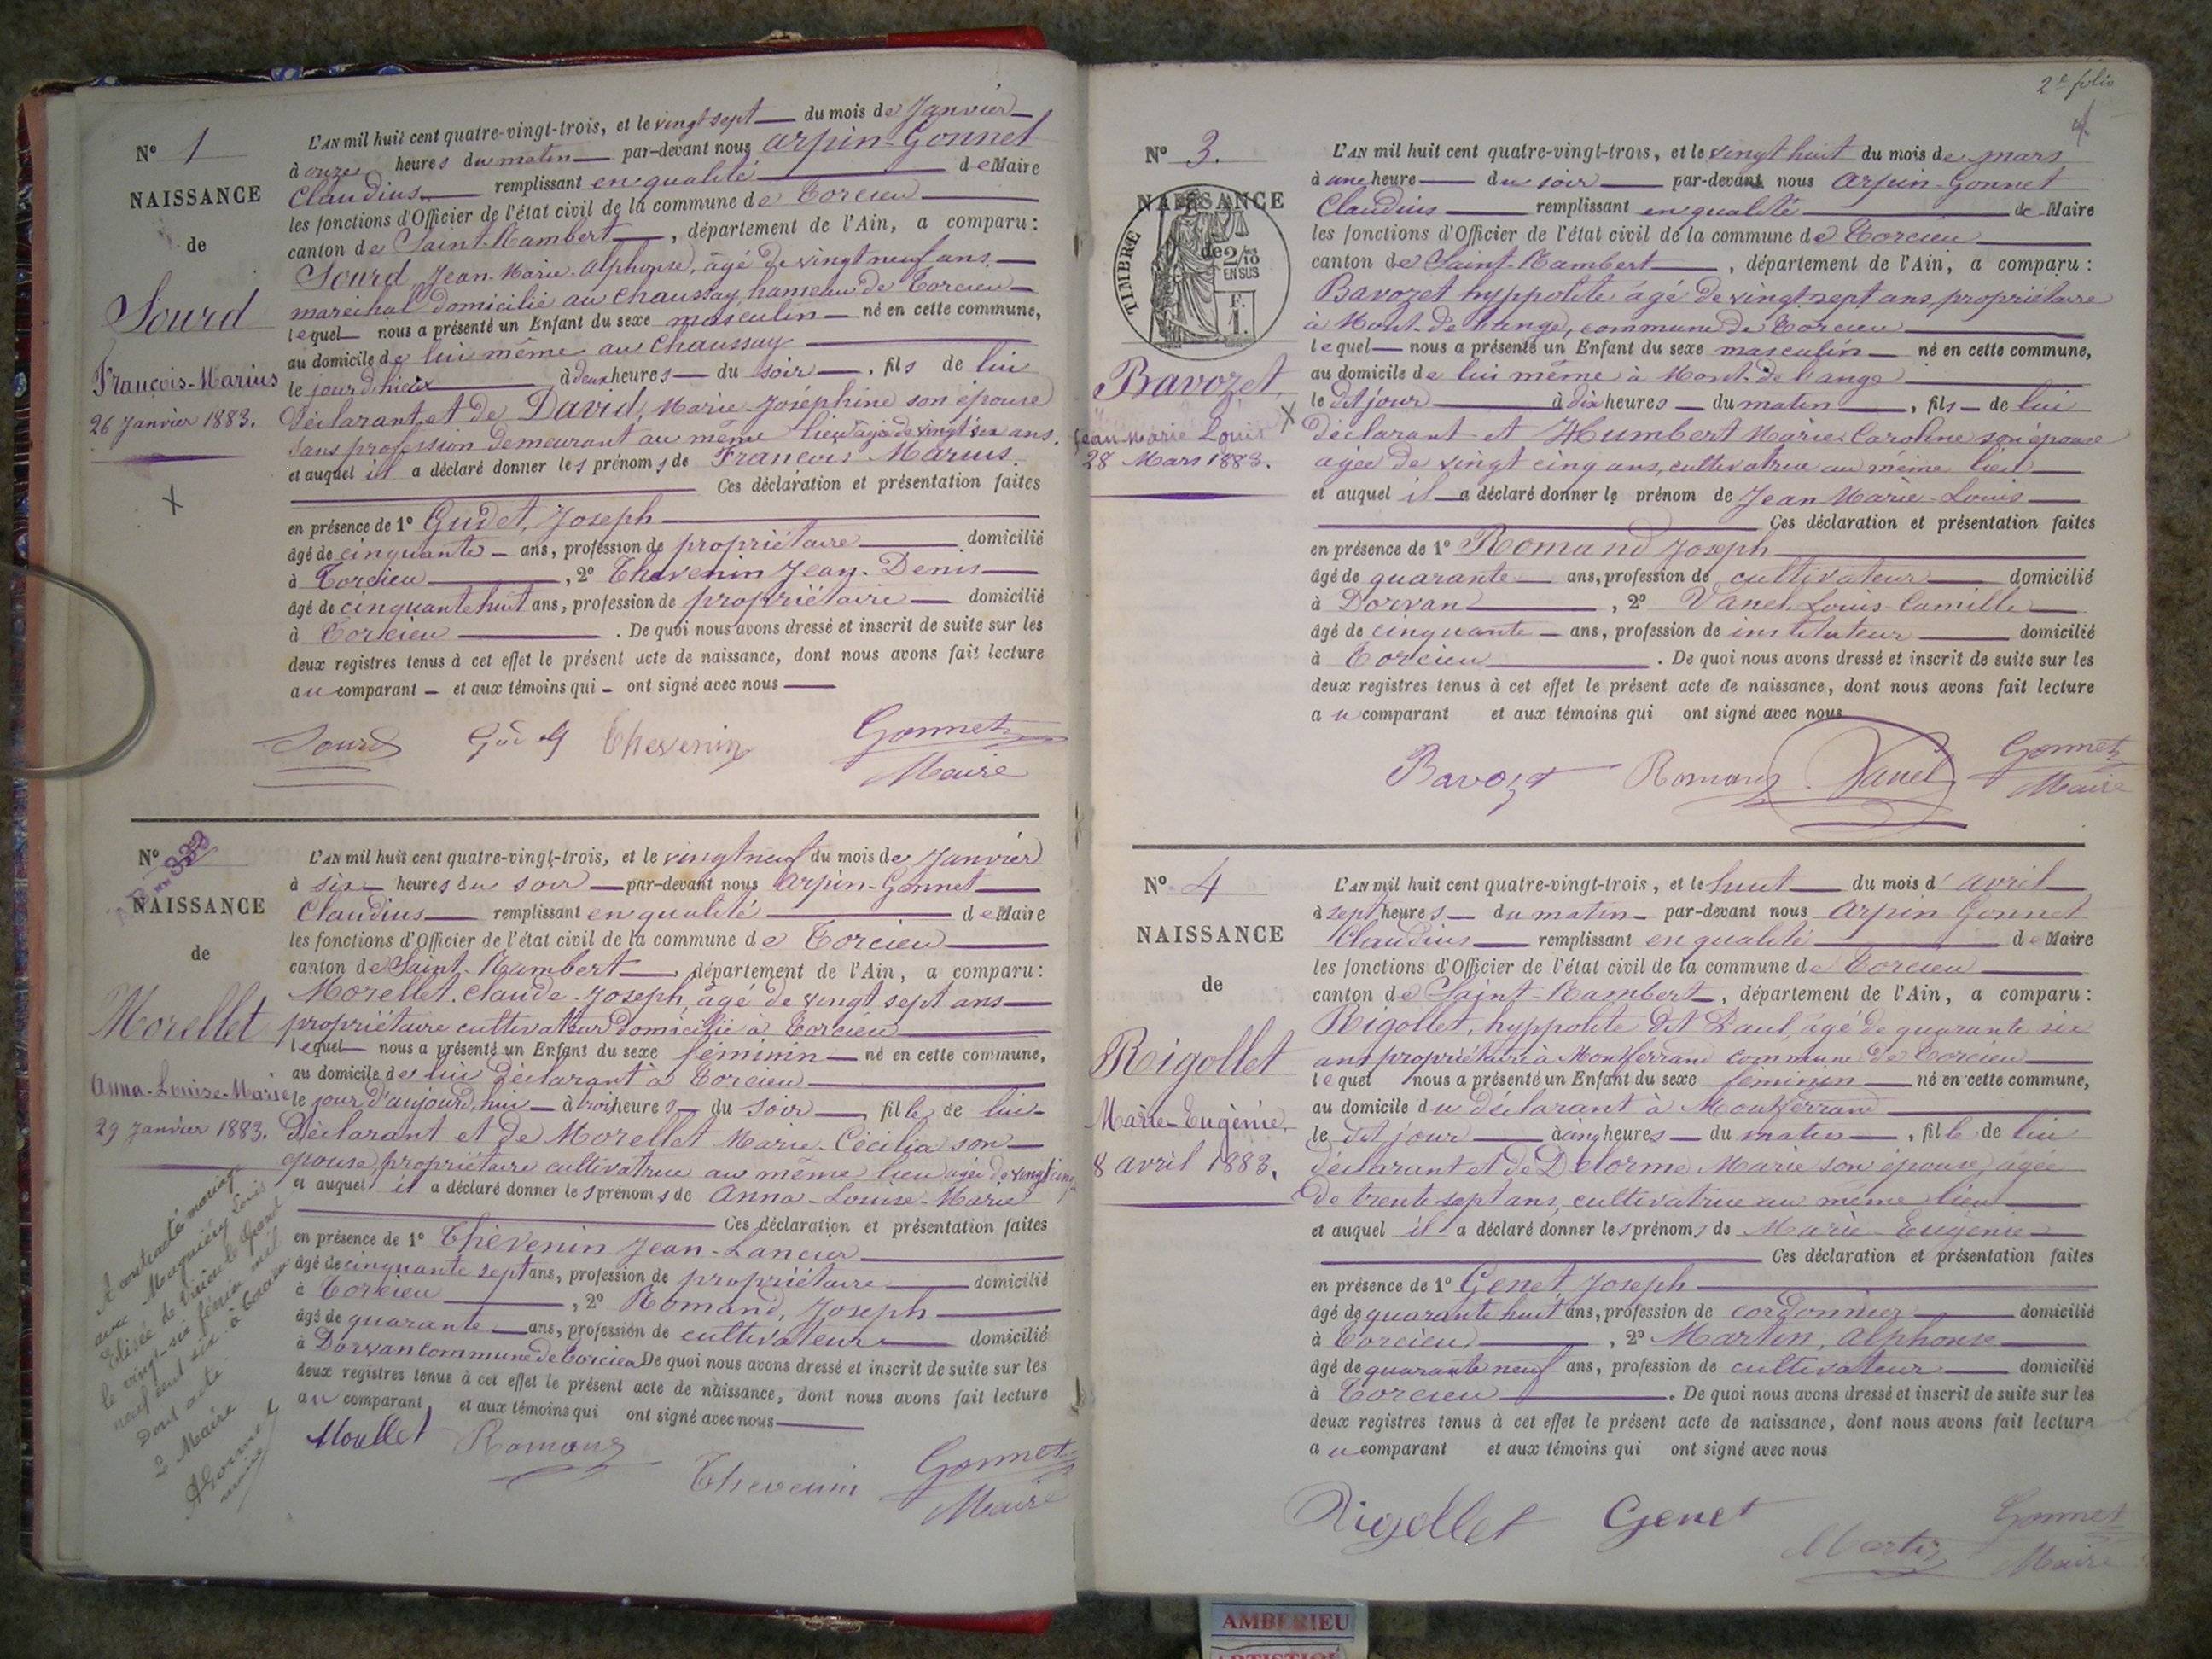 N° 1
NAISSANCE
de
Sourd
François-Marius
26 Janvier 1883.
L'AN mil huit cent quatre-vingt-trois, et le vingt sept du mois de Janvier
à onze heures du matin par-devant nous Arpin-Gonnet
Claudius remplissant en qualité de Maire
les fonctions d'Officier de l'état civil de la commune de Torcieu
canton de Saint-Rambert, département de l'Ain, a comparu :
Sourd Jean-Marie-Alphonse, âgé de vingt neuf ans
maréchal domicilié au Chaussay hameau de Torcieu
lequel nous a présenté un Enfant du sexe masculin né en cette commune,
au domicile de lui même au Chaussay
le jour d'hier à deux heures du soir, fils de lui
déclarant et de David, Marie-Joséphine son épouse
sans profession demeurant au même lieu âgée de vingt six ans.
et auquel il a déclaré donner les prénoms de François Marius.
Ces déclaration et présentation faites
en présence de 1° Gudet, Joseph
âgé de cinquante ans, profession de propriétaire domicilié
à Torcieu, 2° Thevenin Jean-Denis
âgé de cinquante huit ans, profession de propriétaire domicilié
à Torcieu. De quoi nous avons dressé et inscrit de suite sur les
deux registres tenus à cet effet le présent acte de naissance, dont nous avons fait lecture
au comparant et aux témoins qui ont signé avec nous
Sourd Thevenin Gonnet
Maire
N°
NAISSANCE
de
Morellet
Anna-Louise-Marie
29 Janvier 1883.
L'AN mil huit cent quatre-vingt-trois, et le vingt neuf du mois de Janvier
à six heures du soir par-devant nous Arpin-Gonnet
Claudius remplissant en qualité de Maire
les fonctions d'Officier de l'état civil de la commune de Torcieu
canton de Saint-Rambert, département de l'Ain, a comparu :
Morellet Claude-Joseph, âgé de vingt sept ans
propriétaire cultivateur domicilié à Torcieu
lequel nous a présenté un Enfant du sexe féminin né en cette commune,
au domicile de lui déclarant à Torcieu
le jour d'aujourd'hui à trois heures du soir, fille de lui
Déclarant et de Morellet Marie-Cécilia son
épouse, propriétaire cultivatrice au même lieu âgée de vingt cinq
et auquel il a déclaré donner les prénoms de Anna-Louise-Marie
Ces déclaration et présentation faites
en présence de 1° Thévenin Jean-Lancier
âgé de cinquante sept ans, profession de propriétaire domicilié
à Torcieu, 2° Romand, Joseph
âgé de quarante ans, profession de cultivateur domicilié
à Dorvan commune de Torcieu De quoi nous avons dressé et inscrit de suite sur les
deux registres tenus à cet effet le présent acte de naissance, dont nous avons fait lecture
au comparant et aux témoins qui ont signé avec nous
Morellet Romand Thevenin Gonnet
Maire
A contracté mariage
avec Louis
Elisée de Virieu le Grand
le vingt-six février mil
neuf cent six à Torcieu
Dont acte
Maire
2e folio
N° 3.
NAISSANCE
de
TIMBRE
2/10
EN SUS
F.
1.
Bavozet
Jean Marie Louis
28 Mars 1883.
L'AN mil huit cent quatre-vingt-trois, et le vingt huit du mois de mars
à une heure du soir par-devant nous Arpin-Gonnet
Claudius remplissant en qualité de Maire
les fonctions d'Officier de l'état civil de la commune de Torcieu
canton de Saint-Rambert, département de l'Ain, a comparu :
Bavozet hyppolite âgé de vingt sept ans, propriétaire
à Mont-de-Lange, commune de Torcieu
lequel nous a présenté un Enfant du sexe masculin né en cette commune,
au domicile de lui même à Mont-de-Lange
le dit jour à dix heures du matin, fils de lui
déclarant et Humbert Marie Caroline son épouse
âgée de vingt cinq ans, cultivatrice au même lieu
et auquel il a déclaré donner le prénom de Jean Marie-Louis
Ces déclaration et présentation faites
en présence de 1° Romand Joseph
âgé de quarante ans, profession de cultivateur domicilié
à Dorvan, 2° Vanel Louis Camille
âgé de cinquante ans, profession de instituteur domicilié
à Torcieu. De quoi nous avons dressé et inscrit de suite sur les
deux registres tenus à cet effet le présent acte de naissance, dont nous avons fait lecture
au comparant et aux témoins qui ont signé avec nous
Bavozet Romand Vanel Gonnet
Maire
N° 4
NAISSANCE
de
Rigollet
Marie-Eugénie
8 avril 1883.
L'AN mil huit cent quatre-vingt-trois, et le huit du mois d'avril
à sept heures du matin par-devant nous Arpin Gonnet
Claudius remplissant en qualité de Maire
les fonctions d'Officier de l'état civil de la commune de Torcieu
canton de Saint-Rambert, département de l'Ain, a comparu :
Rigollet, hyppolite dit Paul, âgé de quarante six
ans propriétaire à Montferrand commune de Torcieu
lequel nous a présenté un Enfant du sexe féminin né en cette commune,
au domicile du déclarant à Montferrand
le dit jour à cinq heures du matin, fille de lui
déclarant et de Delorme Marie son épouse, âgée
de trente sept ans, cultivatrice au même lieu
et auquel il a déclaré donner les prénoms de Marie-Eugénie
Ces déclaration et présentation faites
en présence de 1° Genet, Joseph
âgé de quarante huit ans, profession de cordonnier domicilié
à Torcieu, 2° Martin, Alphonse
âgé de quarante neuf ans, profession de cultivateur domicilié
à Torcieu. De quoi nous avons dressé et inscrit de suite sur les
deux registres tenus à cet effet le présent acte de naissance, dont nous avons fait lecture
au comparant et aux témoins qui ont signé avec nous
Rigollet Genet Martin Gonnet
Maire
AMBERIEU